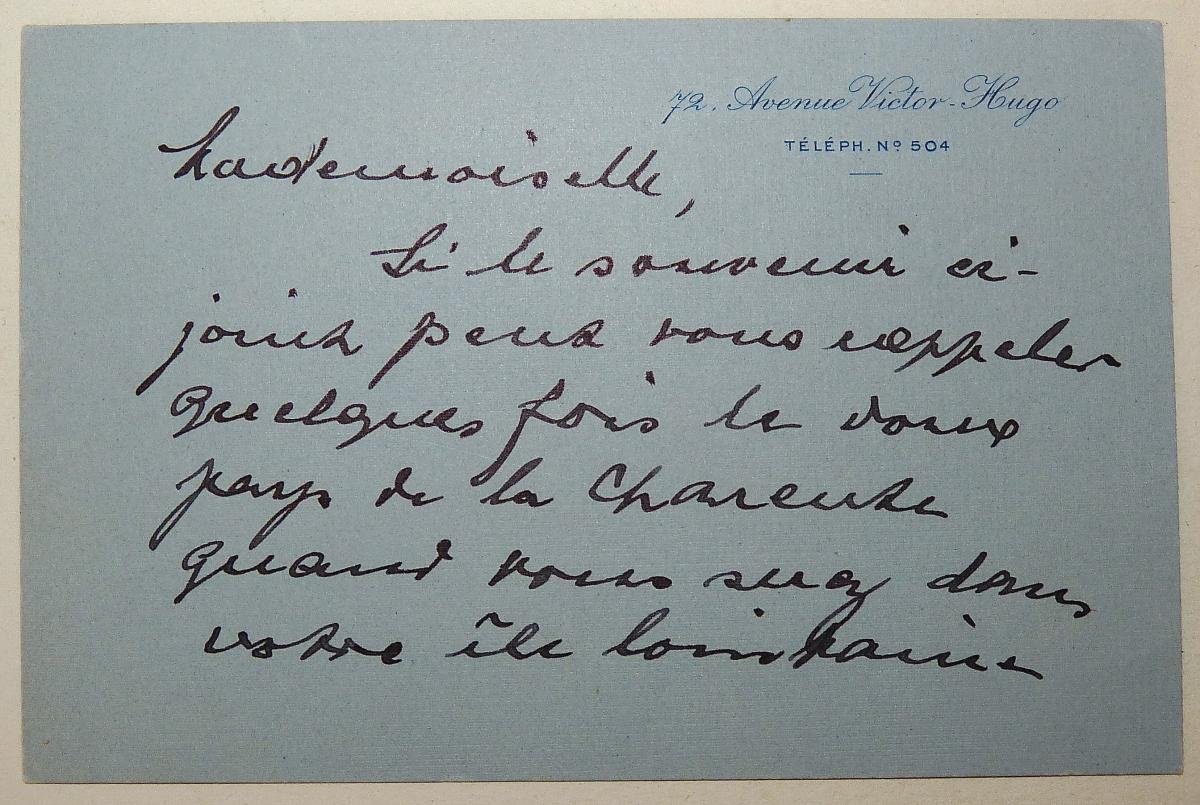 72. Avenue Victor-Hugo
TÉLÉPH. Nº 504
Mademoiselle,
Si le souvenir ci-
joint peut vous rappeler
quelques fois le doux
pays de la Charente
quand vous serez dans
votre île lointaine